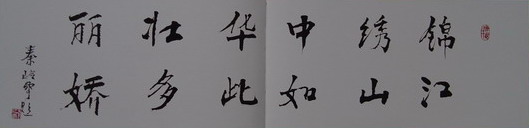 锦绣中华壮丽
江山如此多娇
秦